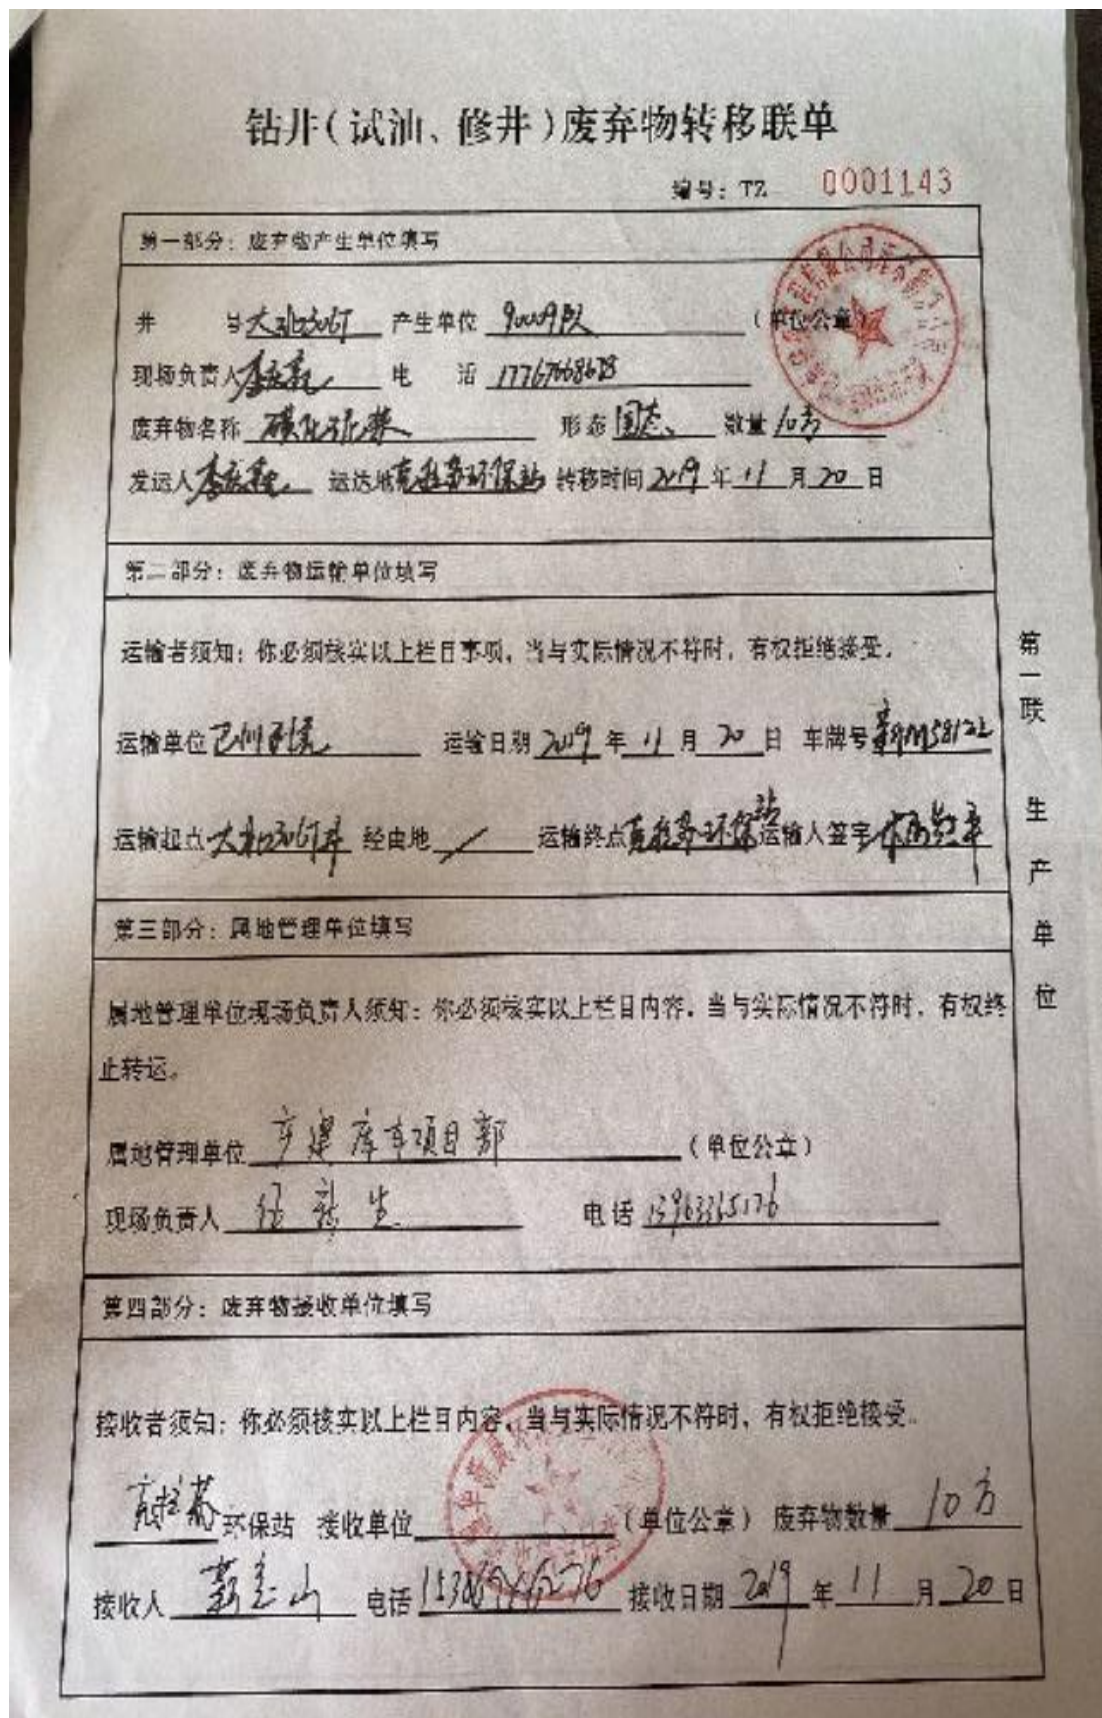 钻井(试油、修井)废弃物转移联单
编号:TZ 0001143
第一部分:废弃物产生单位填写
井 号 大北306T 产生单位 90009队 (单位公章)
现场负责人 电 话 17767668628
废弃物名称 磺化泥浆 形态 固态 数量 10方
发运人 运达地 克拉苏环保站 转移时间 2019 年 11 月 20 日
第二部分:废弃物运输单位填写
运输者须知:你必须核实以上栏目事项,当与实际情况不符时,有权拒绝接受。
运输单位 运输日期 2019 年 11 月 20 日 车牌号 新M58122
运输起点 大北306T井 经由地 / 运输终点 克拉苏环保站 运输人签字
第三部分:属地管理单位填写
属地管理单位现场负责人须知:你必须核实以上栏目内容,当与实际情况不符时,有权终
止转运。
属地管理单位 库车项目部 (单位公章)
现场负责人 电话
第四部分:废弃物接收单位填写
接收者须知:你必须核实以上栏目内容,当与实际情况不符时,有权拒绝接受。
克拉苏 环保站 接收单位 (单位公章) 废弃物数量 10方
接收人 电话 接收日期 2019 年 11 月 20 日
第一联 生产单位